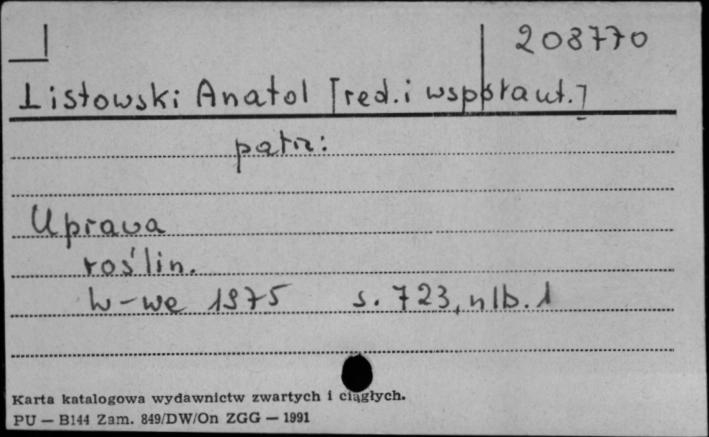 208770
Listowski Anatol [red. i współaut.]
patrz:
Uprawa
roślin.
W-wa 1975 s. 723, nlb. 1
Karta katalogowa wydawnictw zwartych i ciągłych.
PU — B144 Zam. 849/DW/On ZGG — 1991